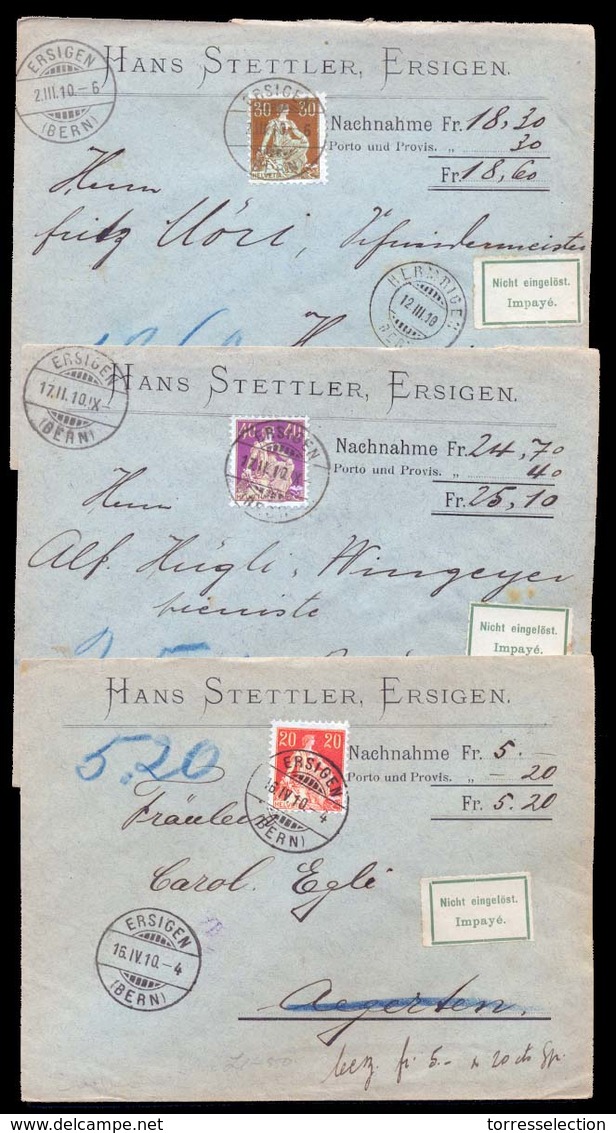 HANS STETTLER, ERSIGEN.
ERSIGEN
2.III.10.-6
(BERN)
ERSIGEN
30 30
HELVETIA
Nachnahme Fr. 18,30
Porto und Provis. „ 30
Fr. 18,60
Herrn
Fritz
HERMRIGEN
12.III.10
Nicht eingelöst.
Impayé.
HANS STETTLER, ERSIGEN.
ERSIGEN
17.II.10.IX-
(BERN)
40 40
ERSIGEN
17.II.10.IX
Nachnahme Fr. 24,70
Porto und Provis. „ 40
Fr. 25,10
Herrn
Alf. Hügli-Wingeyer
Nicht eingelöst.
Impayé.
HANS STETTLER, ERSIGEN.
5.20
20 20
HELVETIA
ERSIGEN
16.IV.10.-4
(BERN)
Nachnahme Fr. 5.-
Porto und Provis. „ -20
Fr. 5.20
Fräulein
Carol. Egli
Nicht eingelöst.
Impayé.
ERSIGEN
16.IV.10.-4
(BERN)
Aegerten.
fr. 5.- 20 cts
delcampe.net
torresselection